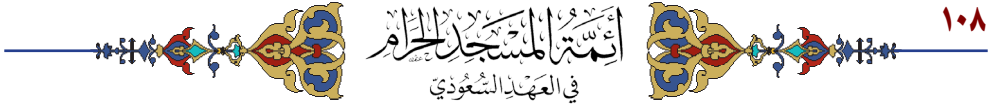 ١٠٨
أَئِمَّةُ المَسْجِدِ الحَرَامِ
فِي العَهْدِ السُّعُودِيّ